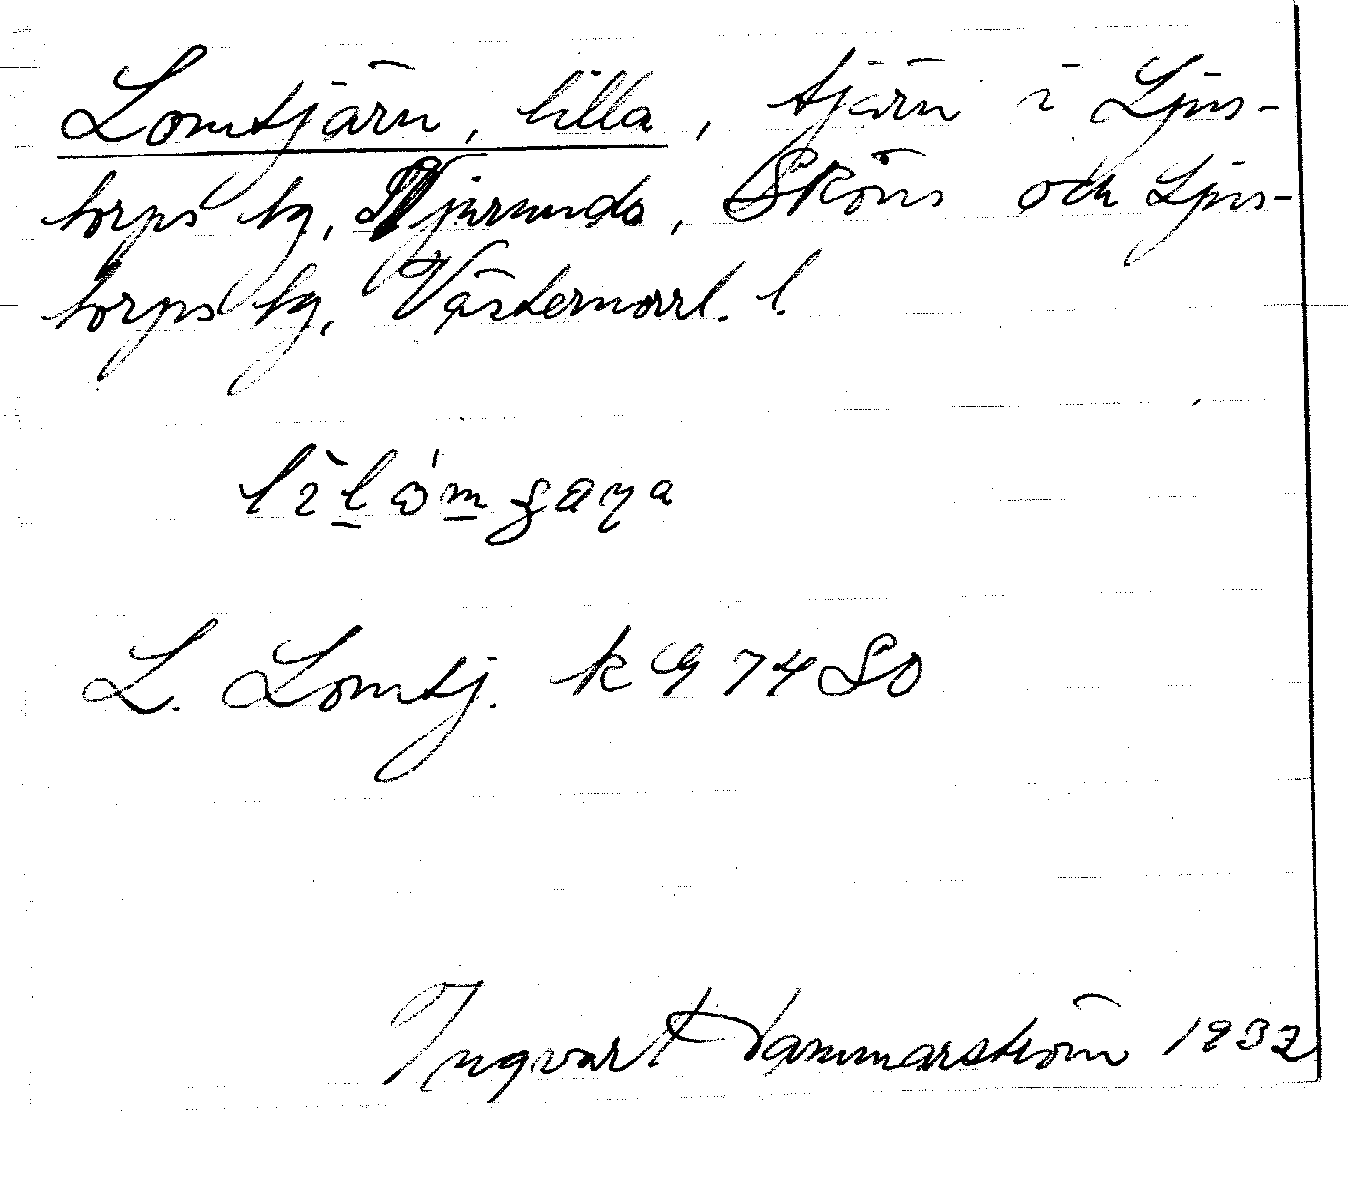 Lomtjärn, lilla, tjärn i Ljus-
torps sg, Njurunda, Sköns och Ljus-
torps tg, Västernorrl. l.
L. Lomtj. k G 7480
Ingvart Hammarström 1932